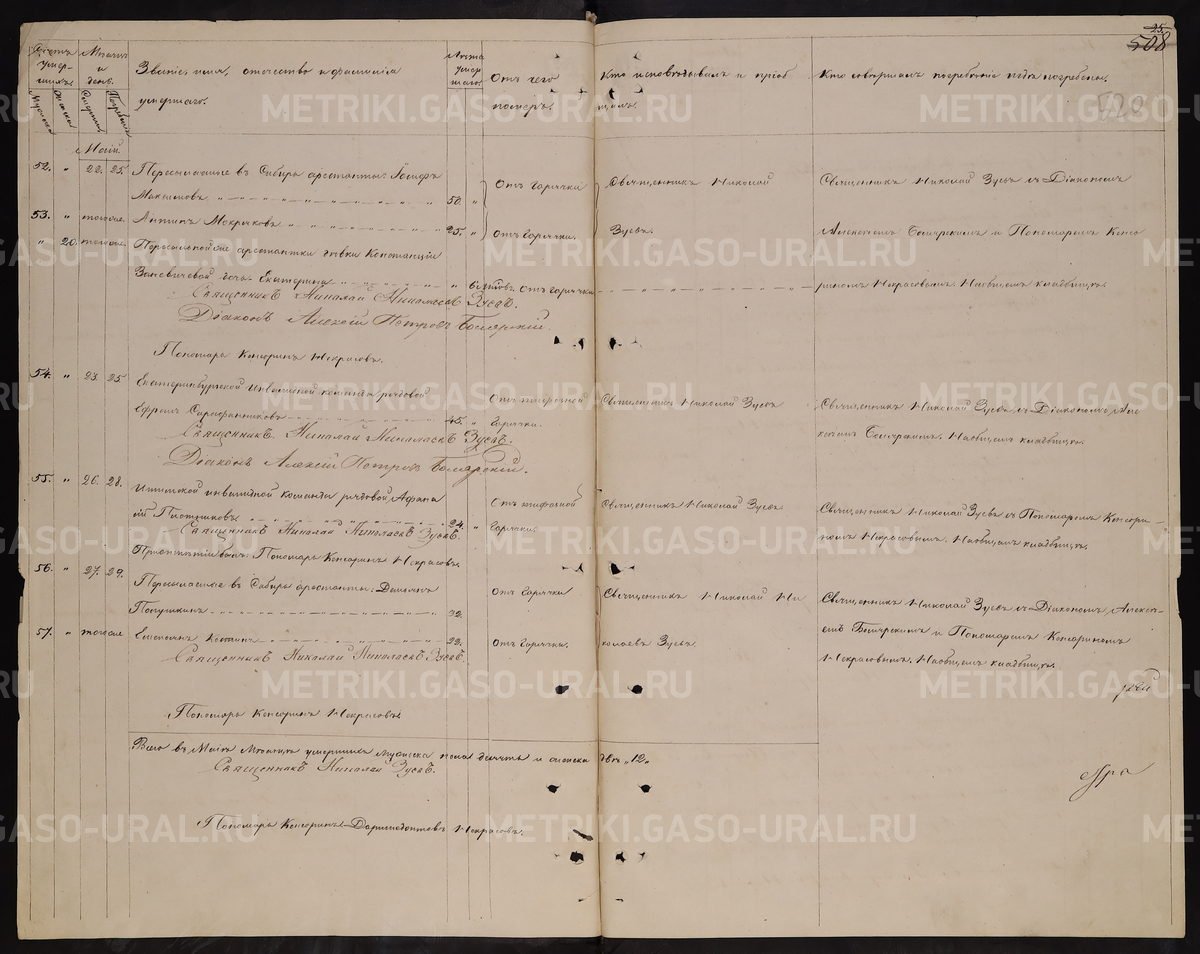 25
508
520
Счетъ умер-шихъ.
Мѣсяцъ и день.
Званіе, имя, отчество и фамилія умершаго.
Лѣта умер шаго.
Отъ чего померъ.
Кто исповѣдывалъ и пріоб щалъ.
Кто совершалъ погребеніе и гдѣ погребены.
Мужеска
Женска
Смерти
Погребенія
Маій.
52. " 22. 25. Пересылаемые въ Сибирь арестанты: Іосифъ
Максимовъ 50. " Отъ горячки Священникъ Николай Священникъ Николай Зуевъ съ Діакономъ
53. " тогоже. Антипъ Мокряковъ 25. " Отъ горячки. Зуевъ. Алексѣемъ Боярскимъ и Пономаремъ Кенсо
" 20. тогоже. Пересыльной же арестантки дѣвки Констанціи
Заневичевой дочь Екатерина " Отъ горячки риномъ Некрасовымъ. На общемъ кладбищѣ.
Священникъ Николай Николаевъ Зуевъ.
Діаконъ Алексій Петровъ Боярскій.
Пономарь Кенсоринъ Некрасовъ.
54. " 23. 25 Екатеринбургской Инвалидной команды рядовой
Ефремъ Сарафанниковъ 45. " Отъ тифозной горячки. Священникъ Николай Зуевъ Священникъ Николай Зуевъ съ Діакономъ Але
ксѣемъ Боярскимъ. На общемъ кладбищѣ.
Священникъ Николай Николаевъ Зуевъ.
Діаконъ Алексій Петровъ Боярскій.
55. " 26. 28. инвалидной команды рядовой Афана
сій Плотниковъ 24. " Отъ тифозной горячки. Священникъ Николай Зуевъ Священникъ Николай Зуевъ съ Пономаремъ Кенсори-
номъ Некрасовымъ. На общемъ кладбищѣ.
Священникъ Николай Николаевъ Зуевъ.
Пономарь Кенсоринъ Некрасовъ.
56. " 27. 29. Пересылаемые въ Сибирь арестанты: Демьянъ
32. Отъ горячки Священникъ Николай Ни Священникъ Николай Зуевъ съ Діакономъ Алексѣ-
57. " тогоже Костинъ 22. Отъ горячки. колаевъ Зуевъ. емъ Боярскимъ и Пономаремъ Кенсориномъ
Некрасовымъ. На общемъ кладбищѣ.
Священникъ Николай Николаевъ Зуевъ.
Пономарь Кенсоринъ Некрасовъ.
Всего въ Маіѣ Мѣсяцѣ умершихъ мужеска пола десять и женска двѣ „12„
Священникъ Николай Зуевъ.
Пономарь Кенсоринъ Дормидонтовъ Некрасовъ.
METRIKI.GASO-URAL.RU